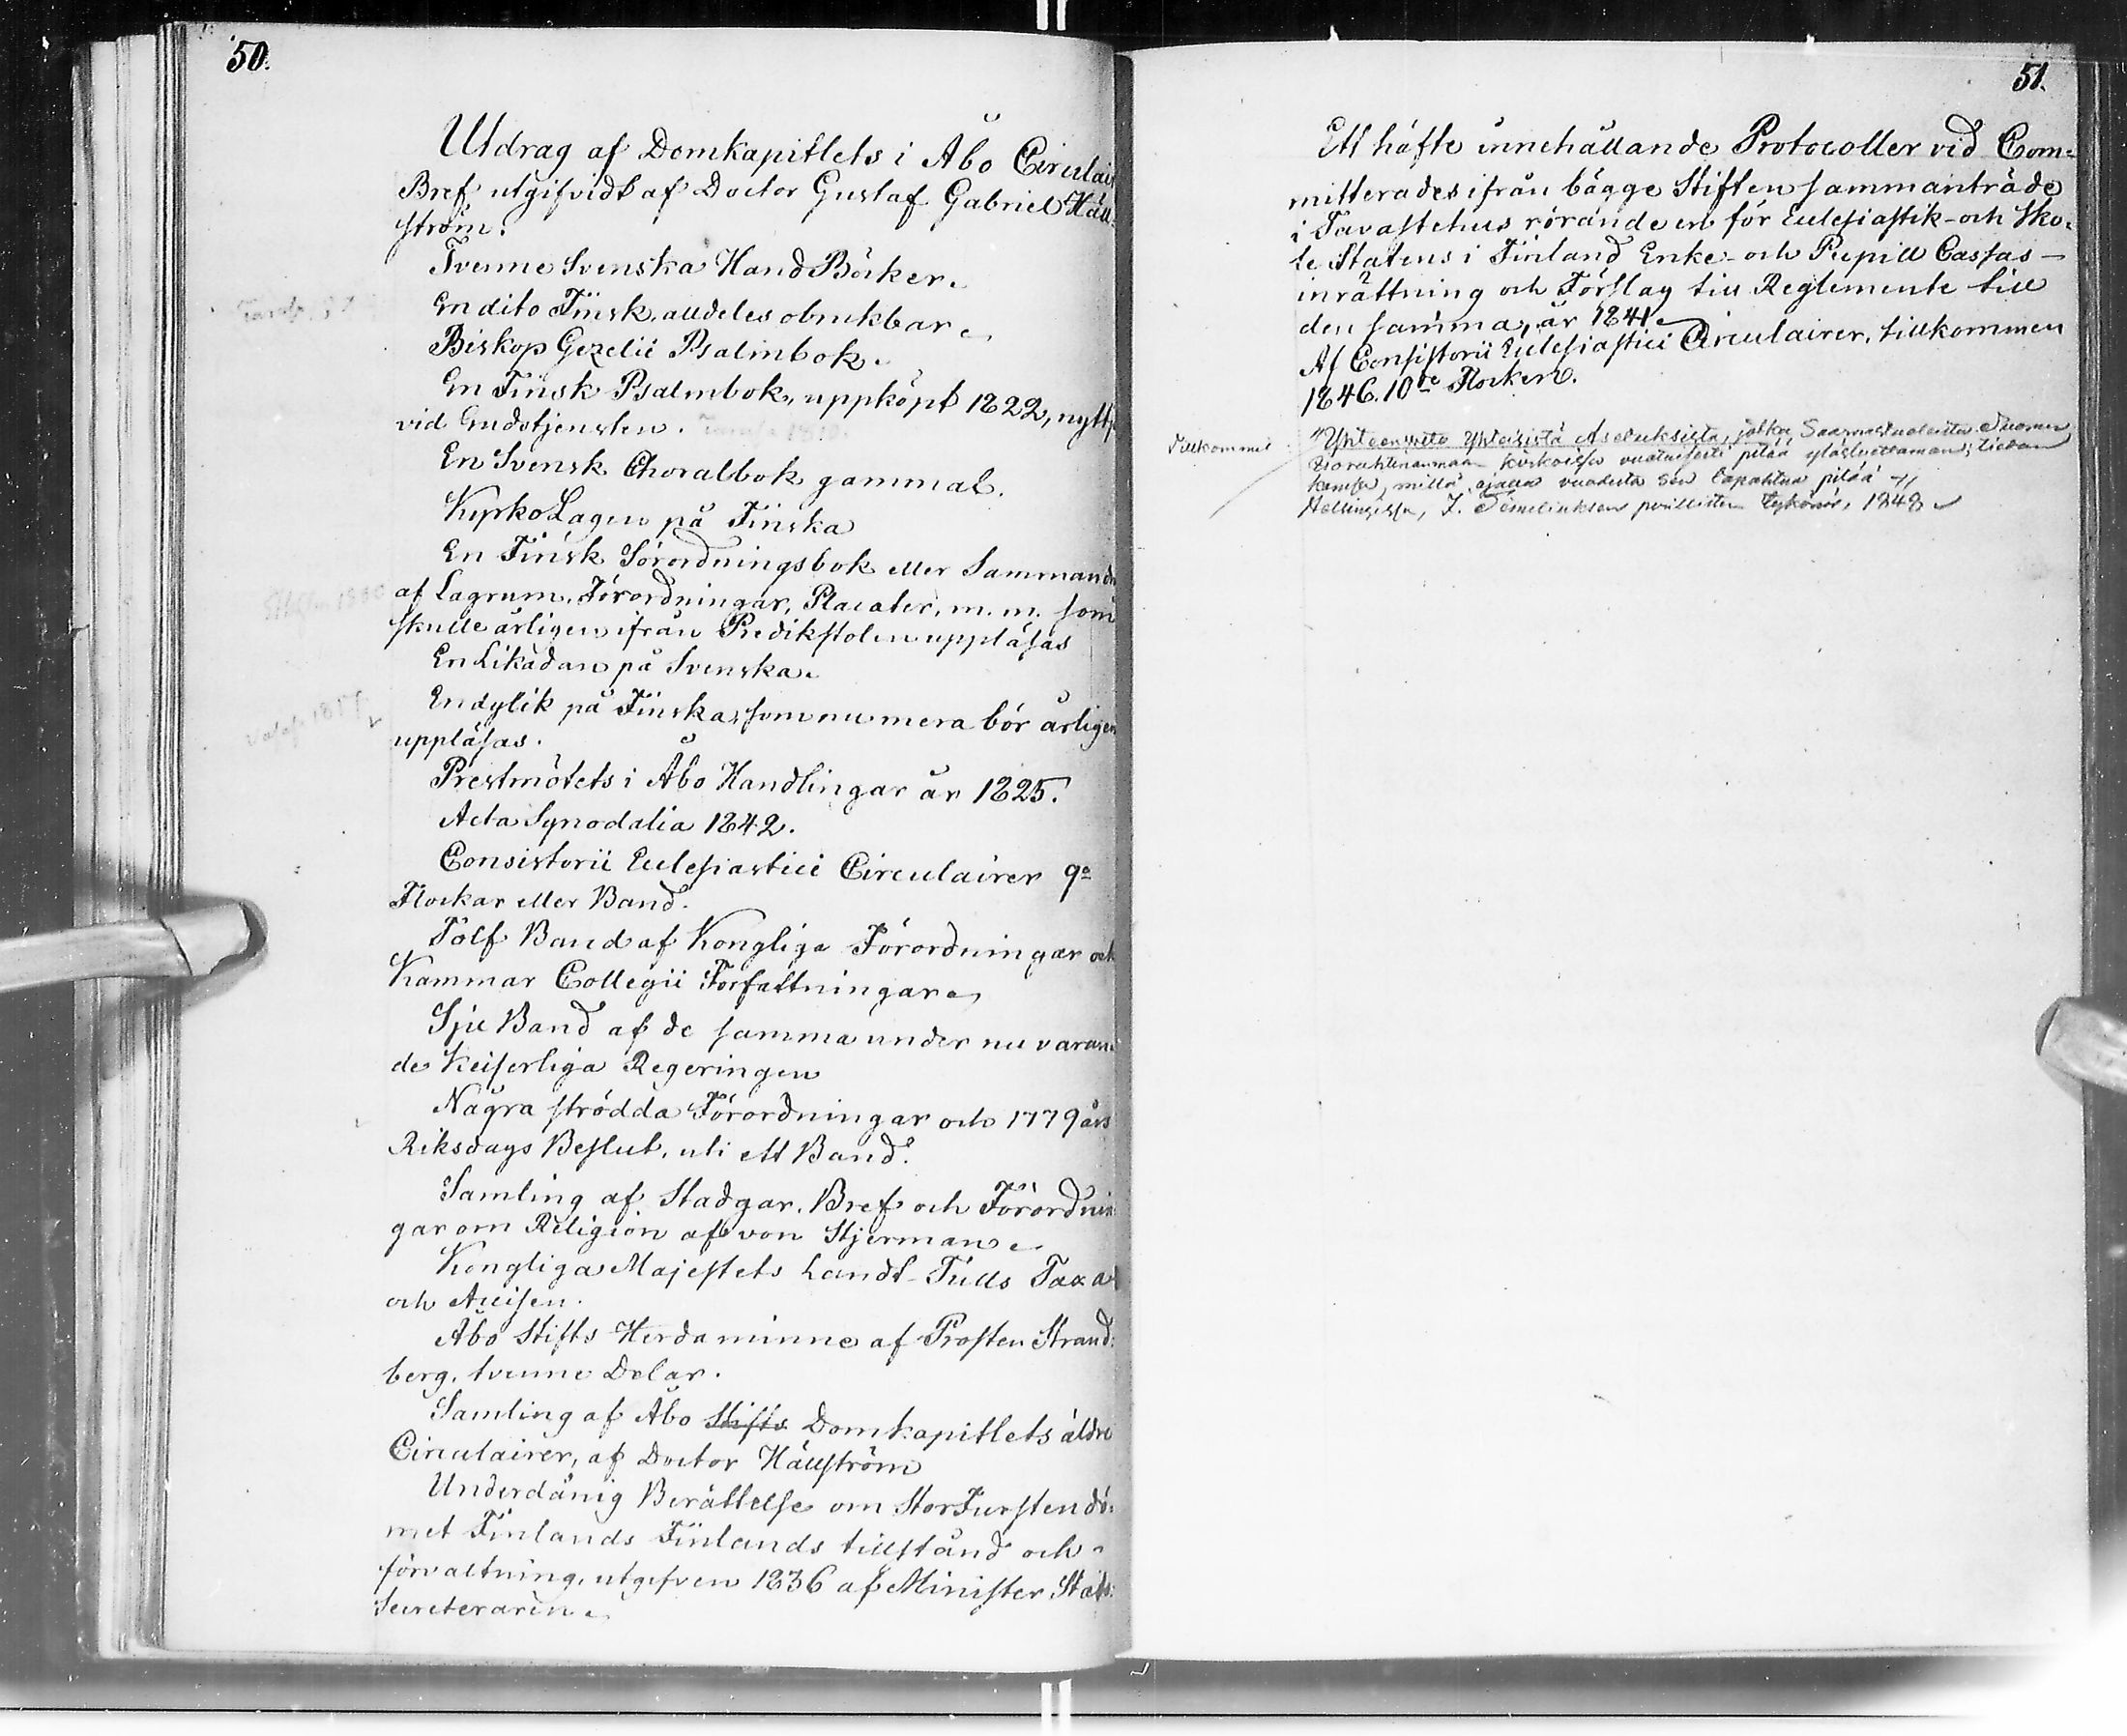 50.
Utdrag af Domkapitlets i Åbo Circulair
Bref, utgifvidt af Doctor Gustaf Gabriel Häll-
ström.
Tvenne Svenska Hand Böcker.
En dito Finsk, alldeles obrukbar.
Biskop Gezelii Psalmbok.
En Finsk Psalmbok, uppköpt 1822, nytt
vid Gudstjensten.
En Svensk Choralbok gammal.
KyrkoLagen på Finska
En Finsk Förordningsbok eller Sammandr
af Lagrum, Förordningar, Placater, m. m. som
skulle årligen ifrån Predikstolen uppläsas
En Likadan på Svenska.
En dylik på Finska, som nu mera bör årligen
uppläsas.
Prestmötets i Åbo Handlingar år 1825.
Acta Synodalia 1842.
Consistorii Eclesiastici Circulairer 9a
Flockar eller Band.
Tolf Band af Kongliga Förordningar och
Kammar Collegii Författningar
Sju Band af de samma under nu varan-
de Keiserliga Regeringen
Några strödda Förordningar och 1779 års
Riksdags Beslut, uti ett Band.
Samling af Stadgar, Bref och Förordnin-
gar om Religion af von Stjerman
Kongliga Majestets Landt-Tulls Taxa
och Accisen.
Åbo Stifts Herdaminne af Prosten Strand-
berg, tvenne Delar.
Samling af Åbo Stifts Domkapitlets äldre
Circulairer, af Doctor Hällström
Underdånig Berättelse om StorFurstendö-
met Finlands Finlands tillstånd och
förvaltning, utgifven 1836 af Minister Stats-
Secreteraren.
51.
Ett häfte innehållande Protocoller vid Com-
mitterades ifrån bägge Stiften sammanträde
i Tavastehus rörande en för Eclesiastik- och Sko-
le Statens i Finland Enke- och Pupill Cassas-
inrättning och Förslag till Reglemente till
den samma, år 1841.
Af Consistorii Eclesiastici Circulairer, tillkommen
1846. 10de Flocken.
Tillkommit
"Yhteenveto Yhteisistä Asetuksista, jotka Saarnastuoleista Suomen
Isoruhtinanmaan kirkoissa vuotuisesti pitää yläsluettaman; tiedon
kanssa, millä ajalla vuodesta sen tapahtua pitää"
Helsingissä, J. Simeliuksen perillisten tykönä, 1848